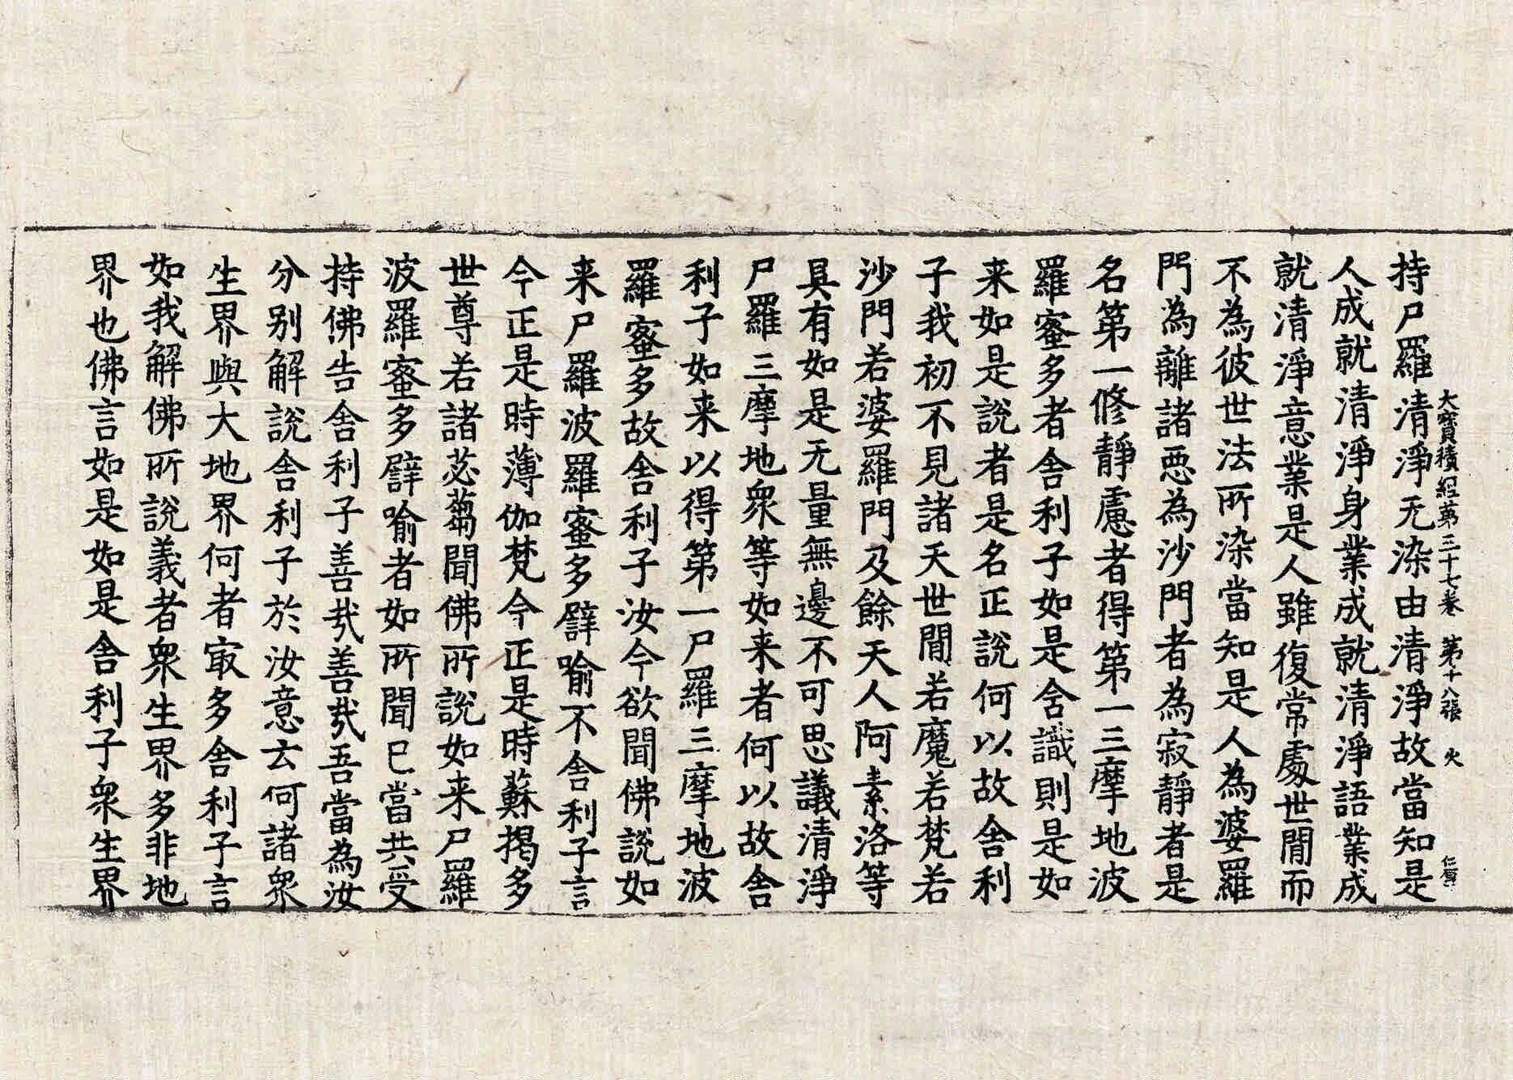 大寶積經第三十七卷 第十八張 火 仁
持尸羅清淨无染由清淨故當知是
人成就清淨身業成就清淨語業成
就清淨意業是人雖復常處世間而
不為彼世法所染當知是人為婆羅
門為離諸惡為沙門者為寂靜者是
名第一修靜慮者得第一三摩地波
羅蜜多者舍利子如是含識則是如
来如是說者是名正說何以故舍利
子我初不見諸天世間若魔若梵若
沙門若婆羅門及餘天人阿素洛等
具有如是无量無邊不可思議清淨
尸羅三摩地衆等如来者何以故舍
利子如来以得第一尸羅三摩地波
羅蜜多故舍利子汝今欲聞佛說如
来尸羅波羅蜜多譬喻不舍利子言
今正是時薄伽梵今正是時蘇揭多
世尊若諸苾蒭聞佛所說如来尸羅
波羅蜜多譬喻者如所聞已當共受
持佛告舍利子善哉善哉吾當為汝
分别解說舍利子於汝意云何諸衆
生界與大地界何者㝡多舍利子言
如我解佛所說義者衆生界多非地
界也佛言如是如是舍利子衆生界